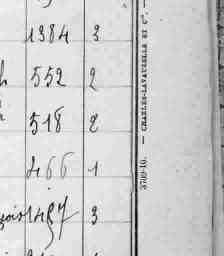 1384 3
552 2
518 2
266 1
1487 3
3799-10. — CHARLES-LAVAUZELLE ET Cⁱᵉ.